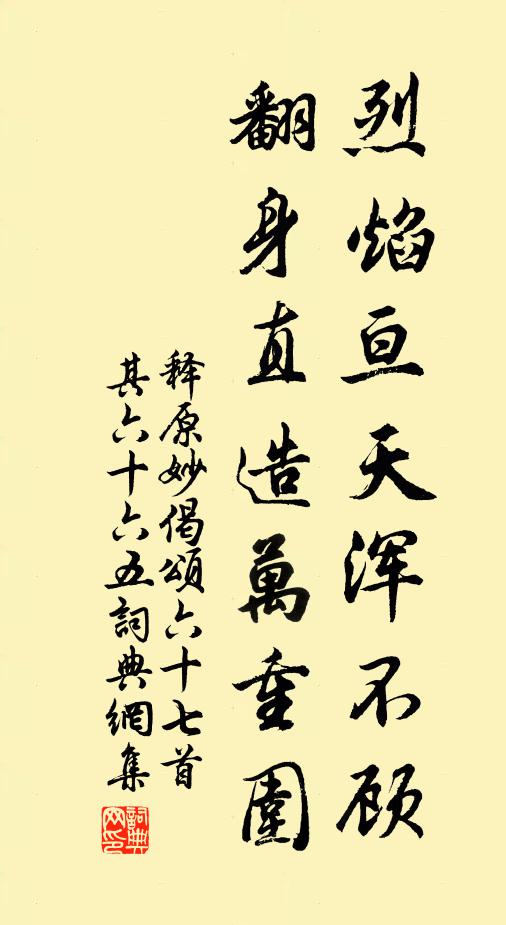 烈焰亘天浑不顾
翻身直造萬重圍
释原妙偈頌六十七首
其六十六五詞典網集
詞典网印